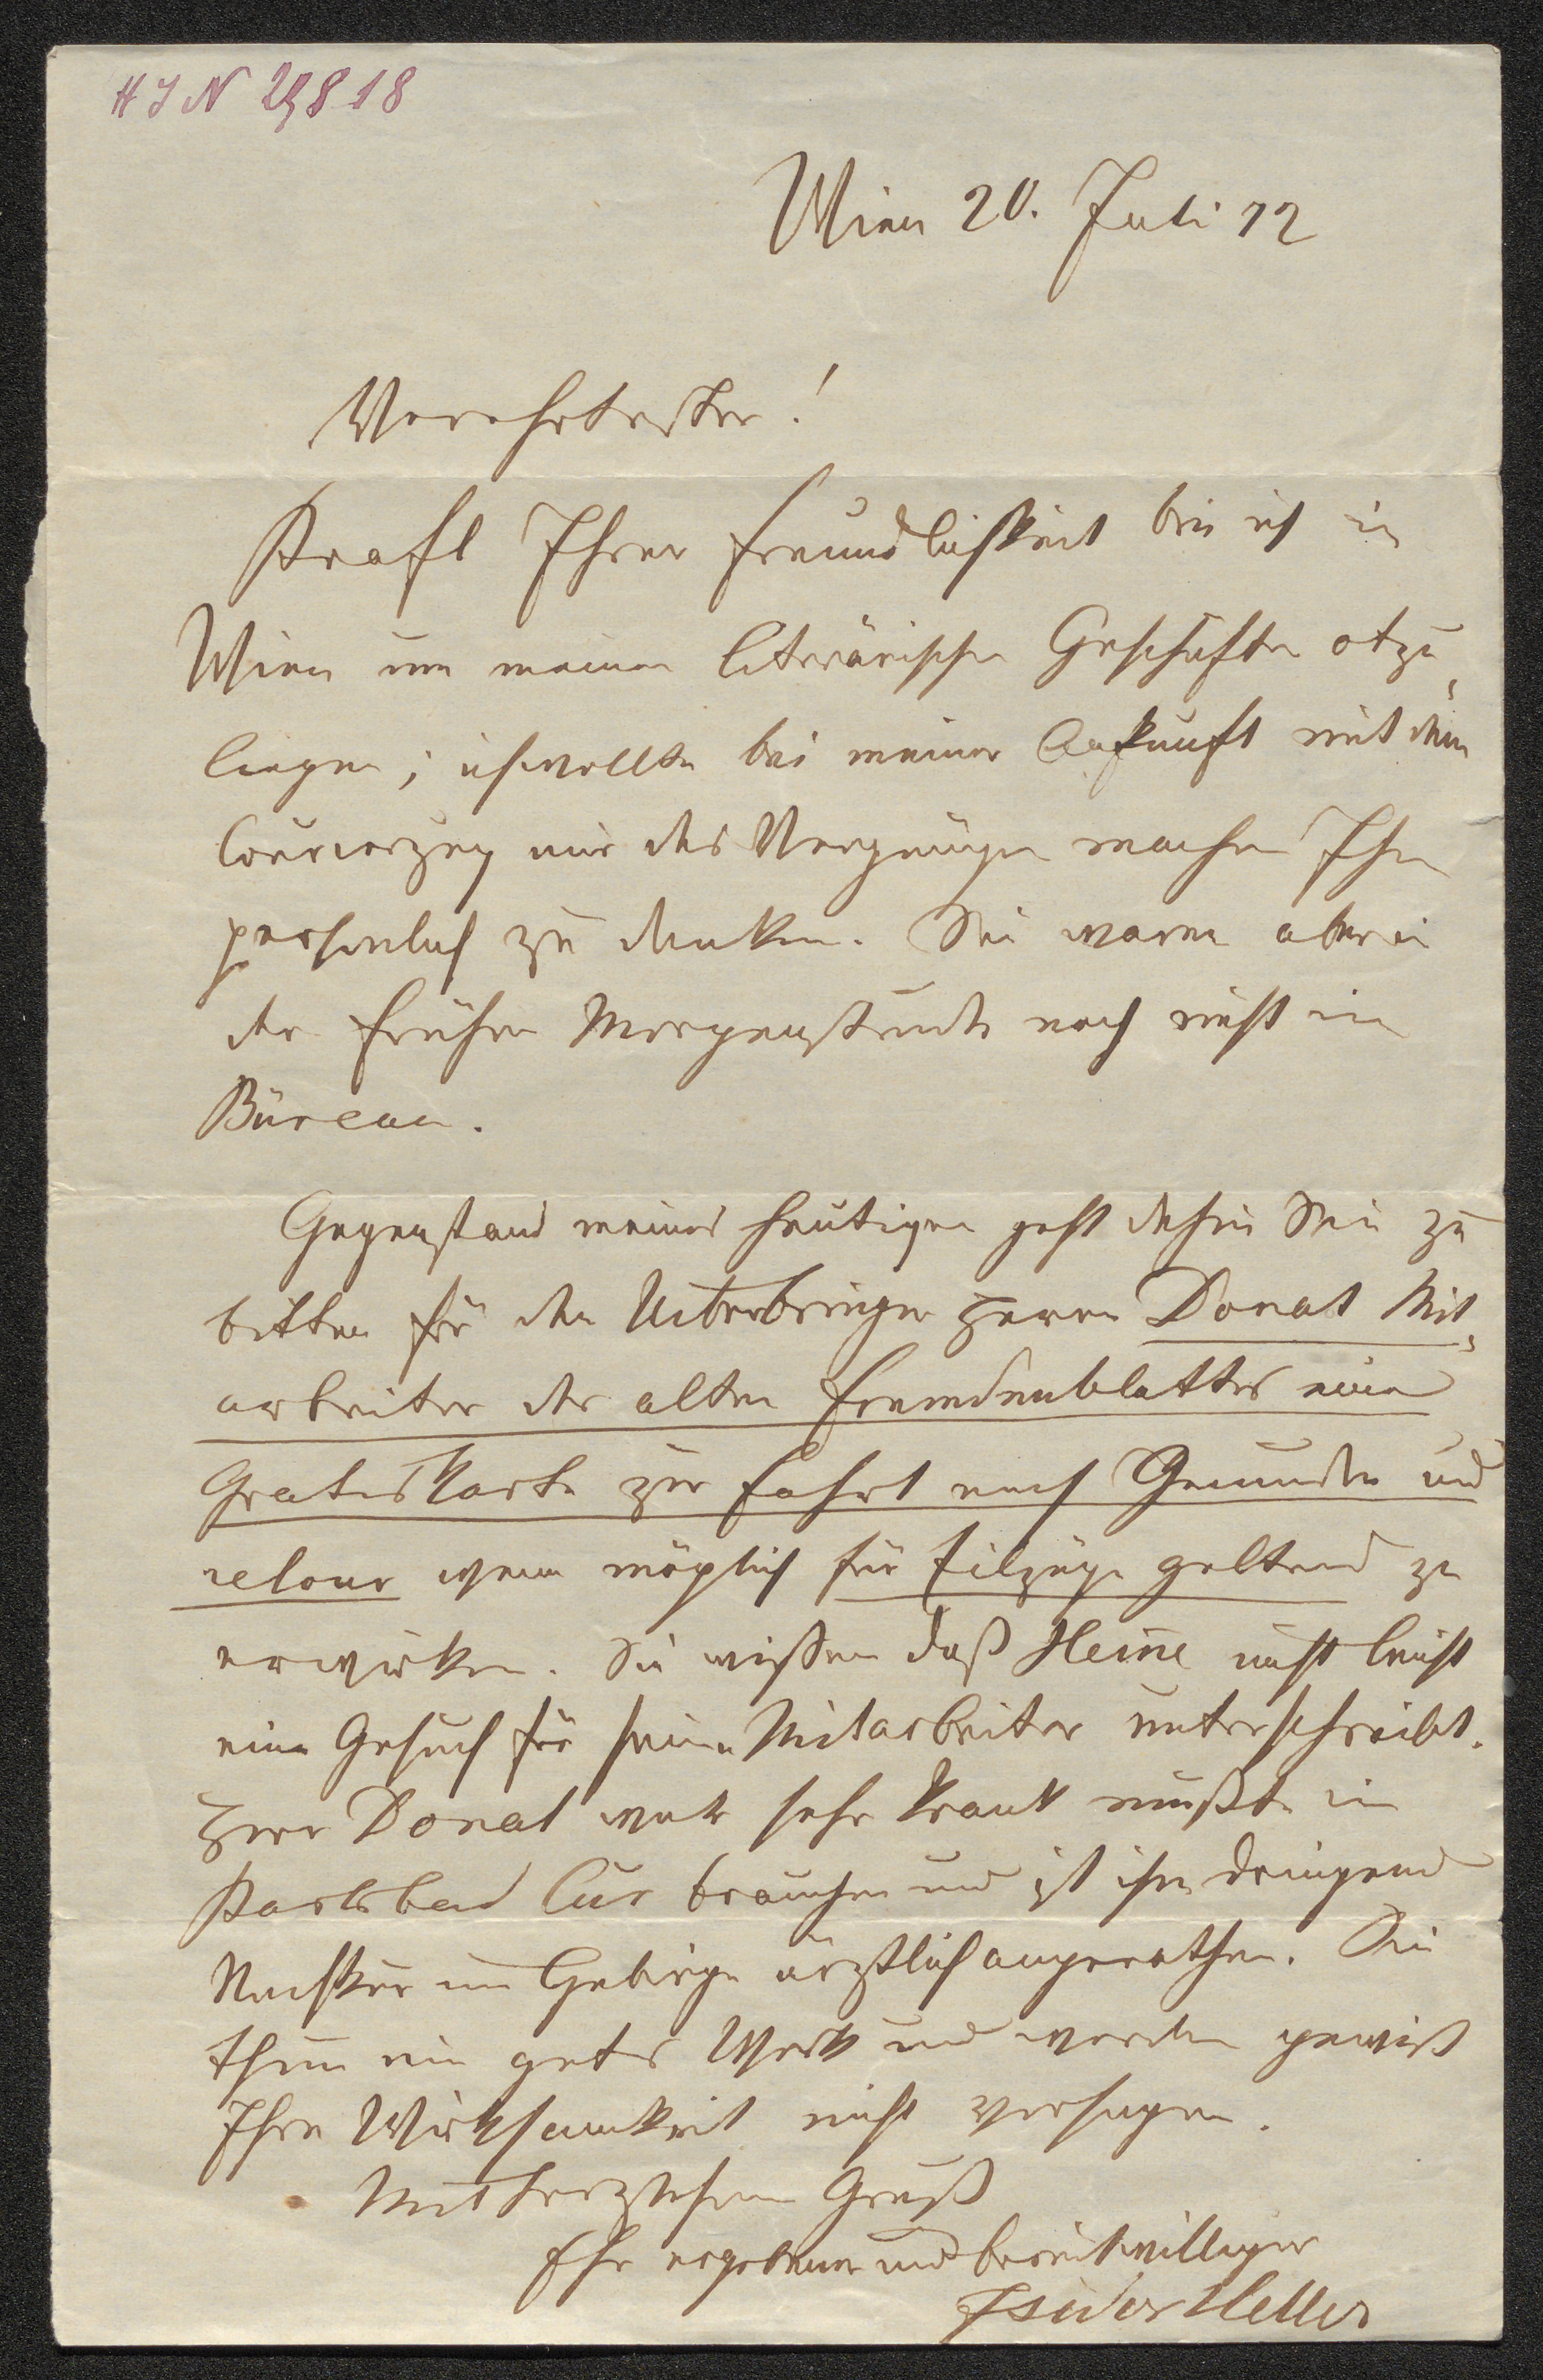 HIN 29818
Wien 20. Juli 72
Verehrtester!
Kraft Ihrer Freundlichkeit bin ich in
Wien um meinen literärischen Geschäften obzu-
liegen; ich wollte bei meiner Ankunft mit dem
Courierzug mir das Vergnügen machen Ihnen
persönlich zu danken. Sie waren aber in
der frühen Morgenstunde noch nicht im
Büreau.
Gegenstand meines Heutigen geht dahin Sie zu
bitten für den Ueberbringer Herrn Donat Mit-
arbeiter des alten Fremdenblattes eine
Gratiskarte zur Fahrt nach Gmunden und
retour wenn möglich für Eilzüge geltend zu
erwirken. Sie wissen daß Heine nicht leicht
ein Gesuch für seine Mitarbeiter unterschreibt.
Herr Donat war sehr krank mußte in
Karlsbad Cur brauchen und ist ihm dringend
Nachkur im Gebirge ärztlich angerathen. Sie
thun ein gutes Werk und werden gewiß
Ihre Wirksamkeit nicht versagen.
Mit herzlichem Gruß
Ihr ergebener und bereitwilliger
Isidor Heller